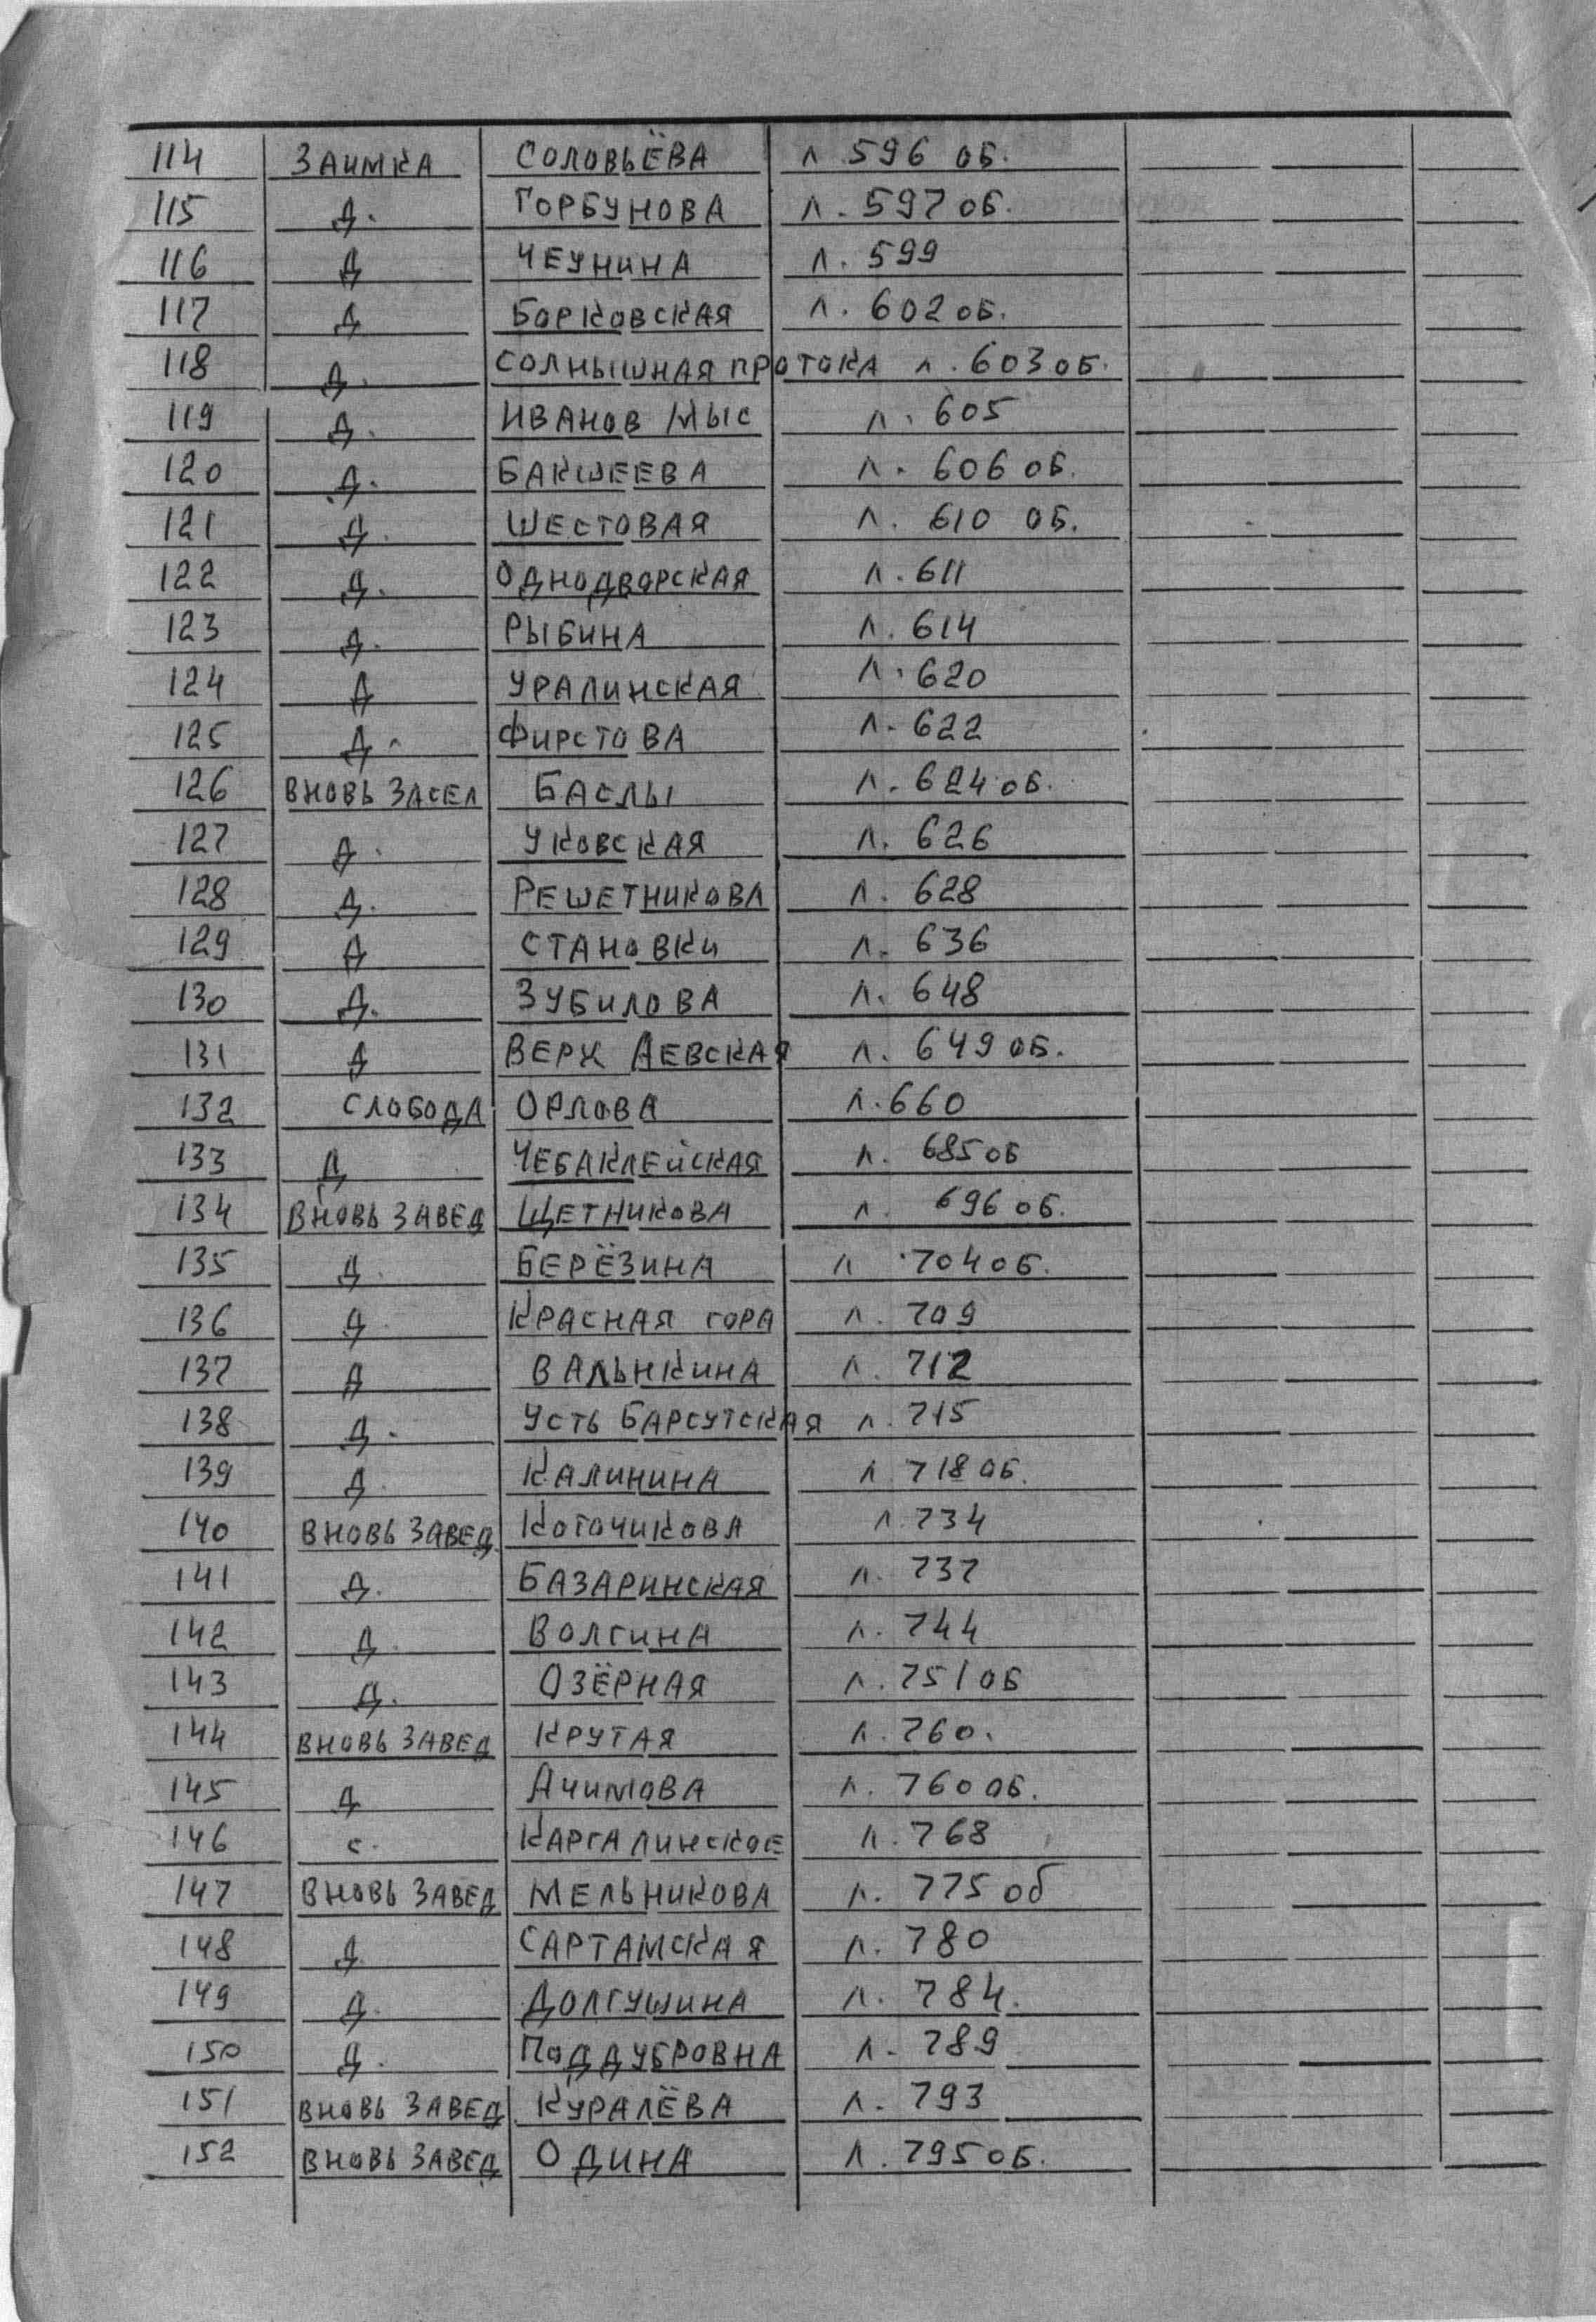 114 ЗАИМКА СОЛОВЬЁВА Л 596 ОБ.
115 Д. ГОРБУНОВА Л. 597 ОБ.
116 Д ЧЕУНИНА Л. 599
117 Д БОРКОВСКАЯ Л. 602 ОБ.
118 Д. СОЛНЫШНАЯ ПРОТОКА Л. 603 ОБ.
119 Д. ИВАНОВ МЫС Л. 605
120 Д. БАКШЕЕВА Л. 606 ОБ.
121 Д. ШЕСТОВАЯ Л. 610 ОБ.
122 Д. ОДНОДВОРСКАЯ Л. 611
123 Д. РЫБИНА Л. 614
124 Д УРАЛИНСКАЯ Л. 620
125 Д. ФИРСТОВА Л. 622
126 ВНОВЬ ЗАСЕЛ БАСЛЫ Л. 624 ОБ.
127 Д. УКОВСКАЯ Л. 626
128 Д. РЕШЕТНИКОВА Л. 628
129 Д СТАНОВКИ Л. 636
130 Д. ЗУБИЛОВА Л. 648
131 Д ВЕРХ АЕВСКАЯ Л. 649 ОБ.
132 СЛОБОДА ОРЛОВА Л. 660
133 Д ЧЕБАКЛЕЙСКАЯ Л. 685 ОБ
134 ВНОВЬ ЗАВЕД ЩЕТНИКОВА Л. 696 ОБ.
135 Д. БЕРЁЗИНА Л. 704 ОБ.
136 Д КРАСНАЯ ГОРА Л. 709
137 Д ВАЛЬНКИНА Л. 712
138 Д. УСТЬ БАРСУТСКАЯ Л. 715
139 Д. КАЛИНИНА Л 718 ОБ.
140 ВНОВЬ ЗАВЕД. КОТОЧИКОВА Л. 734
141 Д. БАЗАРИНСКАЯ Л. 737
142 Д. ВОЛГИНА Л. 744
143 Д. ОЗЁРНАЯ Л. 751 ОБ
144 ВНОВЬ ЗАВЕД КРУТАЯ Л. 760.
145 Д АЧИМОВА Л. 760 ОБ.
146 С. КАРГАЛИНСКОЕ Л. 768
147 ВНОВЬ ЗАВЕД МЕЛЬНИКОВА Л. 775 об
148 Д. САРТАМСКАЯ Л. 780
149 Д. ДОЛГУШИНА Л. 784.
150 Д. ПОДДУБРОВНА Л. 789
151 ВНОВЬ ЗАВЕД КУРАЛЁВА Л. 793
152 ВНОВЬ ЗАВЕД ОДИНА Л. 795 ОБ.